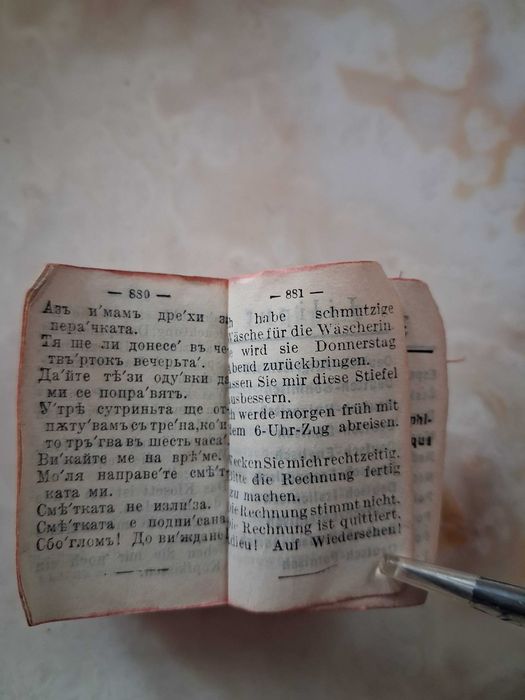 — 880 —
Азъ и'мамъ дре'хи за
пера'чката.
Тя ще ли донесе' въ че
твъ'ртокъ вечерьта'.
Да'йте тѣ'зи оду'вки да
ми се попра'вятъ.
У'трѣ сутриньта ще от
пѫту'вамъ съ тре'па, ко'и
то тръ'гва въ шесть часа'
Ви'кайте ме на врѣ'ме.
Мо'ля направе'те смѣ'т
ката ми.
Смѣ'тката не изли'за.
Смѣ'тката е подпи'сана
Сбо'гломъ! До ви'ждане
— 881 —
habe schmutzige
Wäsche für die Wäscherin
wird sie Donnerstag
Abend zurückbringen.
Lassen Sie mir diese Stiefel
ausbessern.
Ich werde morgen früh mit
dem 6-Uhr-Zug abreisen.
Wecken Sie mich rechtzeitig.
Bitte die Rechnung fertig
zu machen.
Die Rechnung stimmt nicht.
Die Rechnung ist quittiert.
Adieu! Auf Wiedersehen!